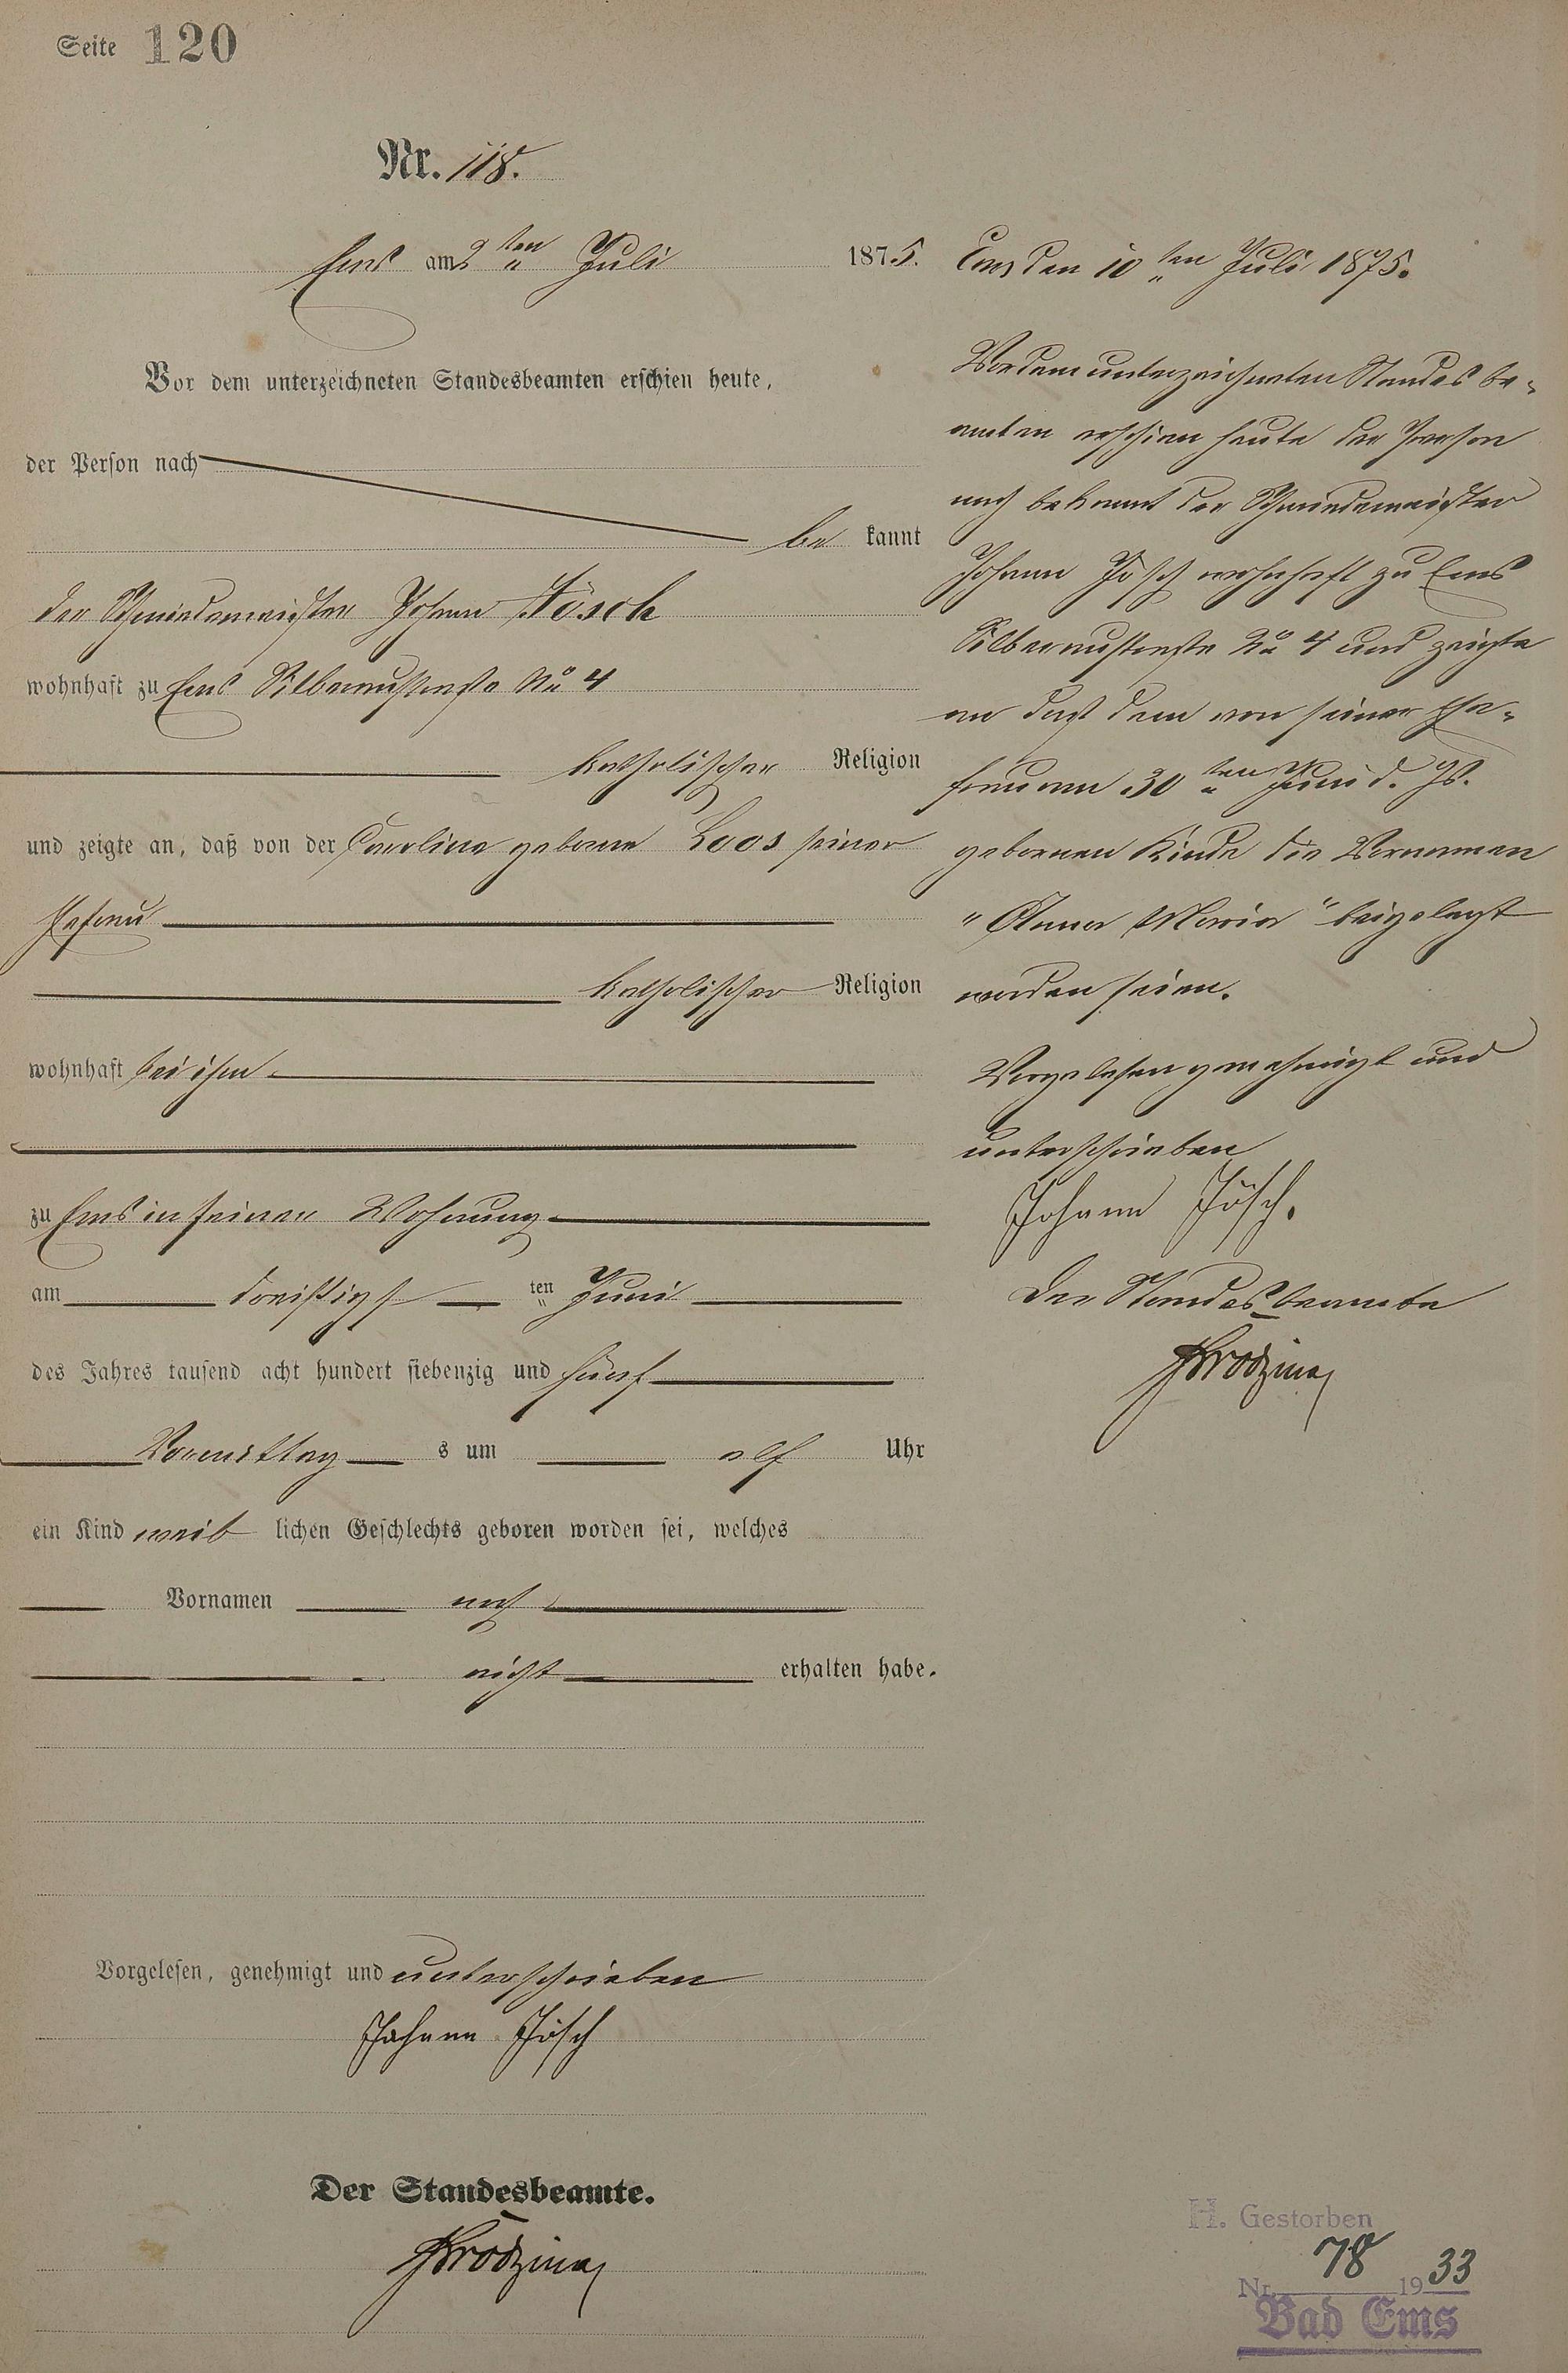 Seite 120
Nr. 118.
Ems am 2ten Juli 1875.
Vor dem unterzeichneten Standesbeamten erschien heute,
der Person nach
be kannt
der Schmiedemeister Johann Jösch
wohnhaft zu Ems Silberaustraße No 4
katholischer Religion
und zeigte an, daß von der Caroline geborene Loos seiner
Ehefrau
katholischer Religion
wohnhaft bei ihm
zu Ems in seiner Wohnung
am dreißigs ten Juni
des Jahres tausend acht hundert siebenzig und fünf
Vormittag s um elf Uhr
ein Kind weib lichen Geschlechts geboren worden sei, welches
Vornamen noch
nicht erhalten habe.
Vorgelesen, genehmigt und unterschrieben
Johann Jösch
Der Standesbeamte.
Ems den 10ten Juli 1875.
Vor dem unterzeichneten Standes be-
amten erschien heute der Person
nach bekannt der Schmiedemeister
Johann Jösch wohnhaft zu Ems
Silberaustraße No 4 und zeigte
an daß dem von seiner Ehe-
frau am 30ten Juni d. Js.
geborenen Kinde die Vornamen
"Anna Maria" beigelegt
worden seien.
Vorgelesen genehmigt und
unterschrieben
Johann Jösch.
Der Standesbeamte
H. Gestorben
Nr. 78 1933
Bad Ems